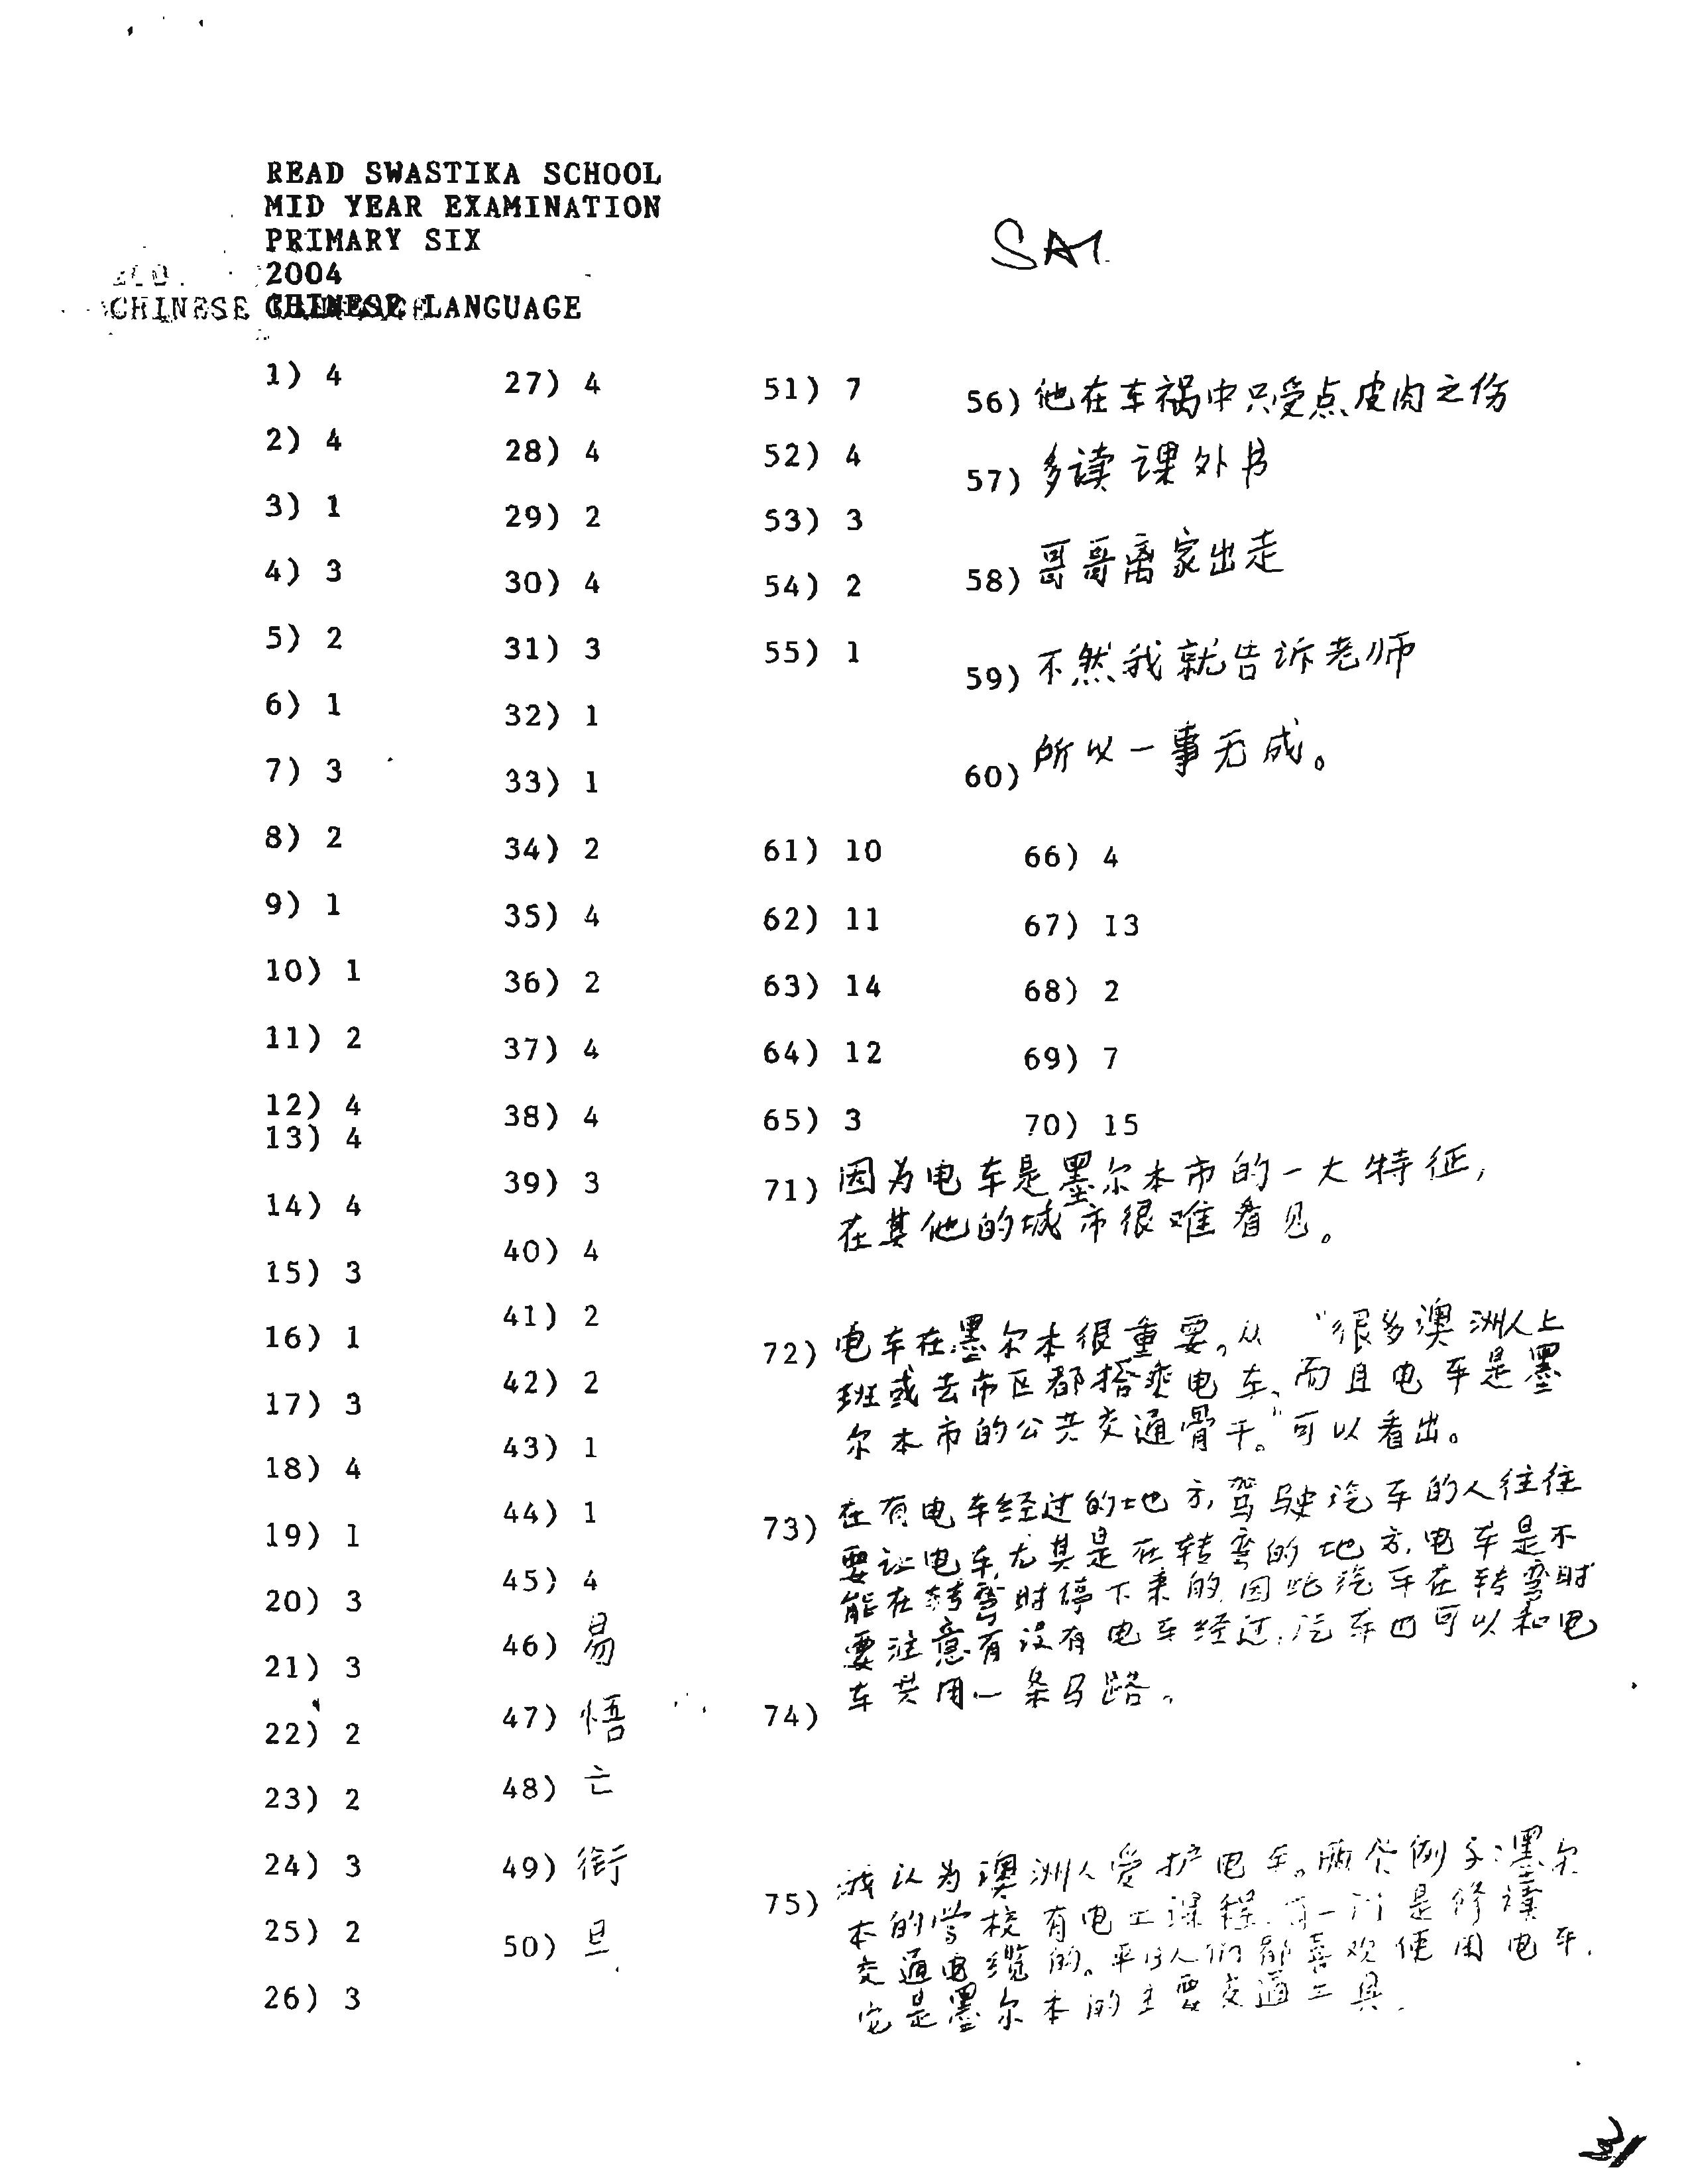 READ SWASTIKA SCHOOL
MID YEAR EXAMINATION
PRIMARY SIX
2004
CHINESE CHINESE LANGUAGE
SA1
1) 4
2) 4
3) 1
4) 3
5) 2
6) 1
7) 3
8) 2
9) 1
10) 1
11) 2
12) 4
13) 4
14) 4
15) 3
16) 1
17) 3
18) 4
19) 1
20) 3
21) 3
22) 2
23) 2
24) 3
25) 2
26) 3
27) 4
28) 4
29) 2
30) 4
31) 3
32) 1
33) 1
34) 2
35) 4
36) 2
37) 4
38) 4
39) 3
40) 4
41) 2
42) 2
43) 1
44) 1
45) 4
46) 易
47) 悟
48) 亡
49) 衔
50) 旦
51) 7
52) 4
53) 3
54) 2
55) 1
56) 他在车祸中只受点皮肉之伤
57) 多读课外书
58) 哥哥离家出走
59) 不然我就告诉老师
60) 所以一事无成。
61) 10
62) 11
63) 14
64) 12
65) 3
66) 4
67) 13
68) 2
69) 7
70) 15
71) 因为电车是墨尔本市的一大特征,
在其他的城市很难看见。
72) 电车在墨尔本很重要。从“很多澳洲人上
班或去市区都搭乘电车、而且电车是墨
尔本市的公共交通骨干。”可以看出。
73) 在有电车经过的地方,驾驶汽车的人往往
要让电车,尤其是在转弯的地方,电车是不
能在转弯时停下来的,因此汽车在转弯时
要注意有没有电车经过,汽车也可以和电
车共用一条马路。
74)
75) 我认为澳洲人爱护电车。两个例子:墨尔
本的学校有电工课程,有一门是修读
交通电缆的。平日人们都喜欢使用电车,
它是墨尔本的主要交通工具.
31